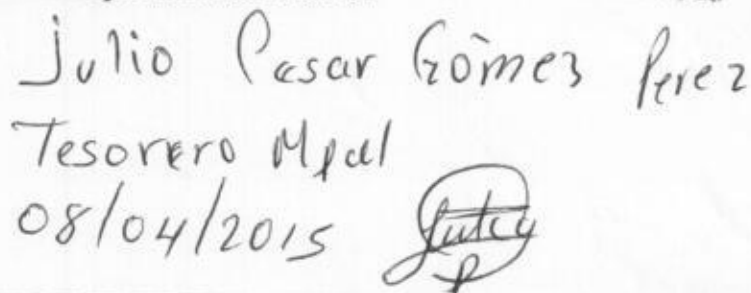 Julio Cesar Gómez Perez
Tesorero Mpal
08/04/2015